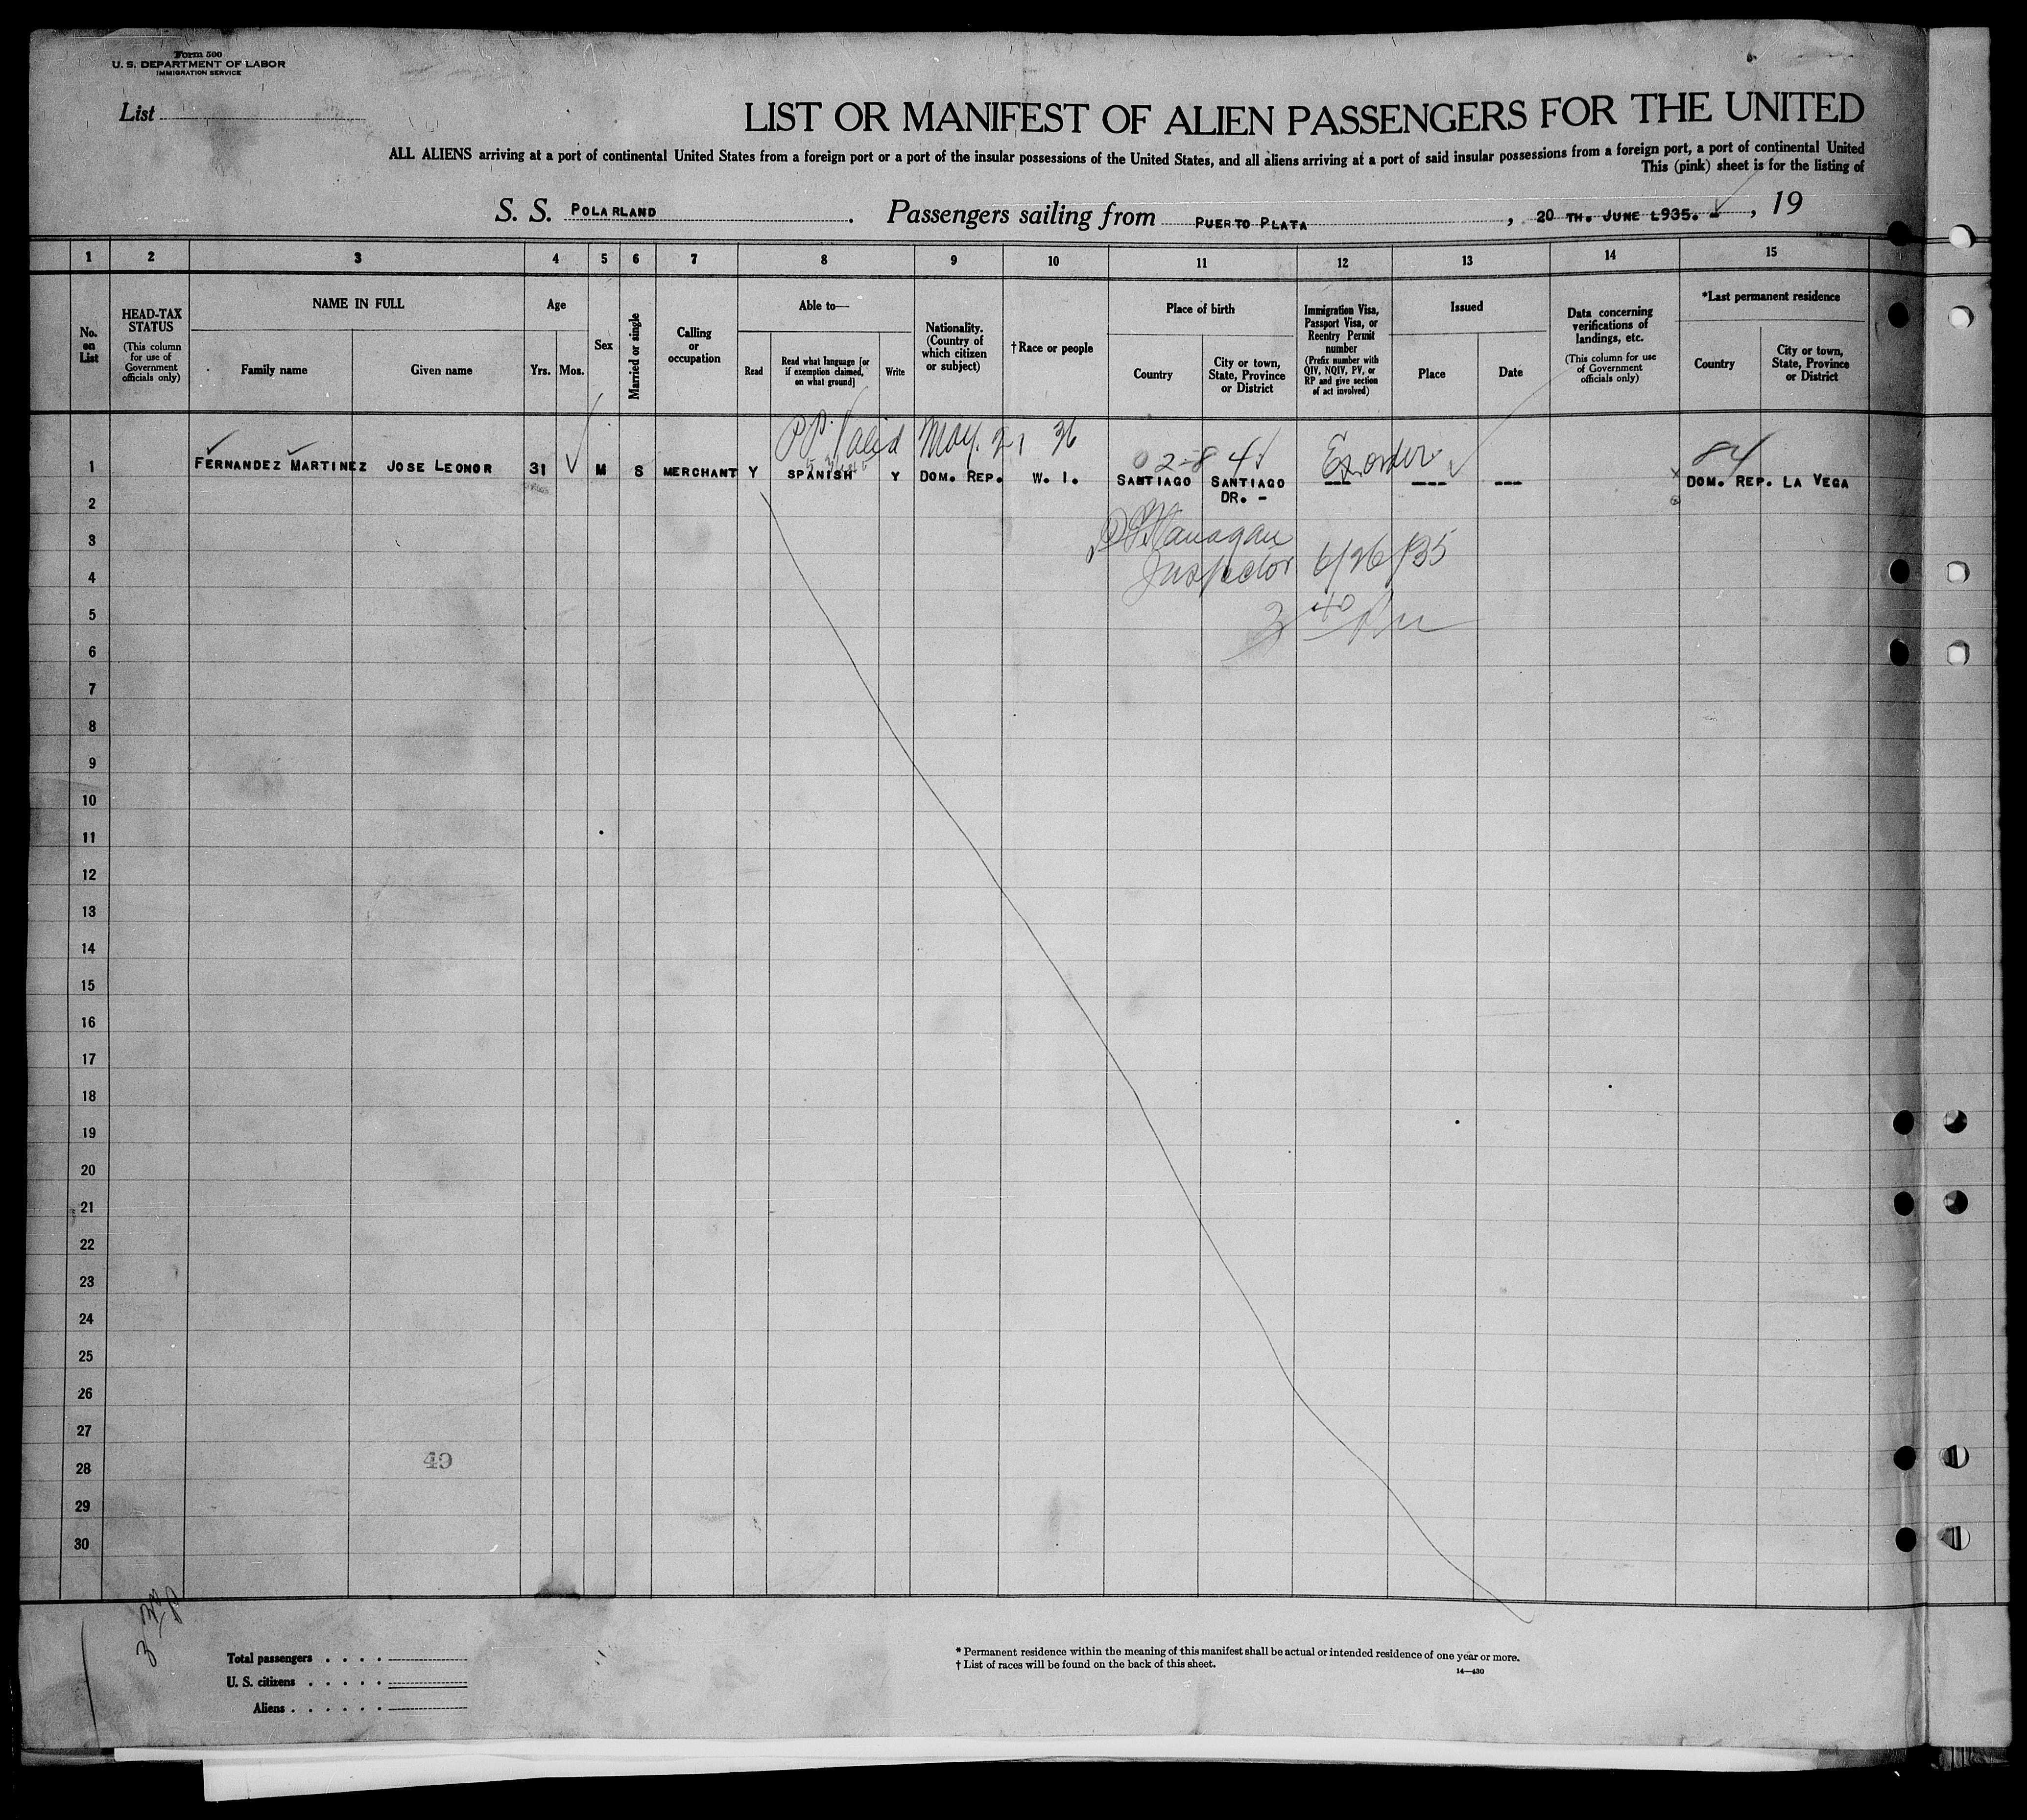 Form 500
U. S. DEPARTMENT OF LABOR
IMMIGRATION SERVICE
List
LIST OR MANIFEST OF ALIEN PASSENGERS FOR THE UNITED
ALL ALIENS arriving at a port of continental United States from a foreign port or a port of the insular possessions of the United States, and all aliens arriving at a port of said insular possessions from a foreign port, a port of continental United
This (pink) sheet is for the listing of
S. S. POLARLAND. Passengers sailing from PUERTO PLATA, 20 TH. JUNE L935. -, 19
1 2 3 4 5 6 7 8 9 10 11 12 13 14 15
No. on List
HEAD-TAX STATUS
(This column for use of Government officials only)
NAME IN FULL
Family name
Given name
Age
Yrs. Mos.
Sex
Married or single
Calling or occupation
Able to—
Read
Read what language [or if exemption claimed, on what ground]
Write
Nationality. (Country of which citizen or subject)
† Race or people
Place of birth
Country
City or town, State, Province or District
Immigration Visa, Passport Visa, or Reentry Permit number
(Prefix number with QIV, NQIV, PV, or RP and give section of act involved)
Issued
Place
Date
Data concerning verifications of landings, etc.
(This column for use of Government officials only)
*Last permanent residence
Country
City or town, State, Province or District
PP. Valid May. 21 36
84
1 FERNANDEZ MARTINEZ JOSE LEONOR 31 M S MERCHANT Y SPANISH Y DOM. REP. W. I. SANTIAGO SANTIAGO --- ---- --- DOM. REP. LA VEGA
DR. -
2
3
Inspector 6/26/35
4
5
3 40
6
7
8
9
10
11
12
13
14
15
16
17
18
19
20
21
22
23
24
25
26
27
49
28
29
30
Total passengers . . . .
U. S. citizens . . . . .
Aliens . . . . . .
* Permanent residence within the meaning of this manifest shall be actual or intended residence of one year or more.
† List of races will be found on the back of this sheet.
14—430